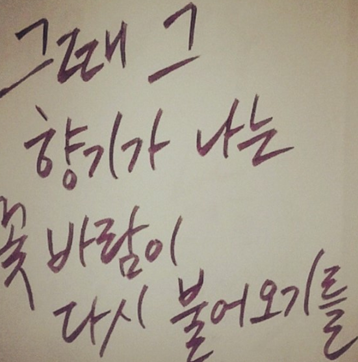 그때 그
향기가 나는
꽃 바람이
다시 불어오기를